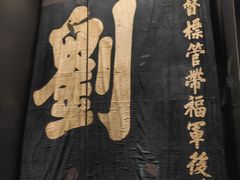 督標管帶福軍後
劉